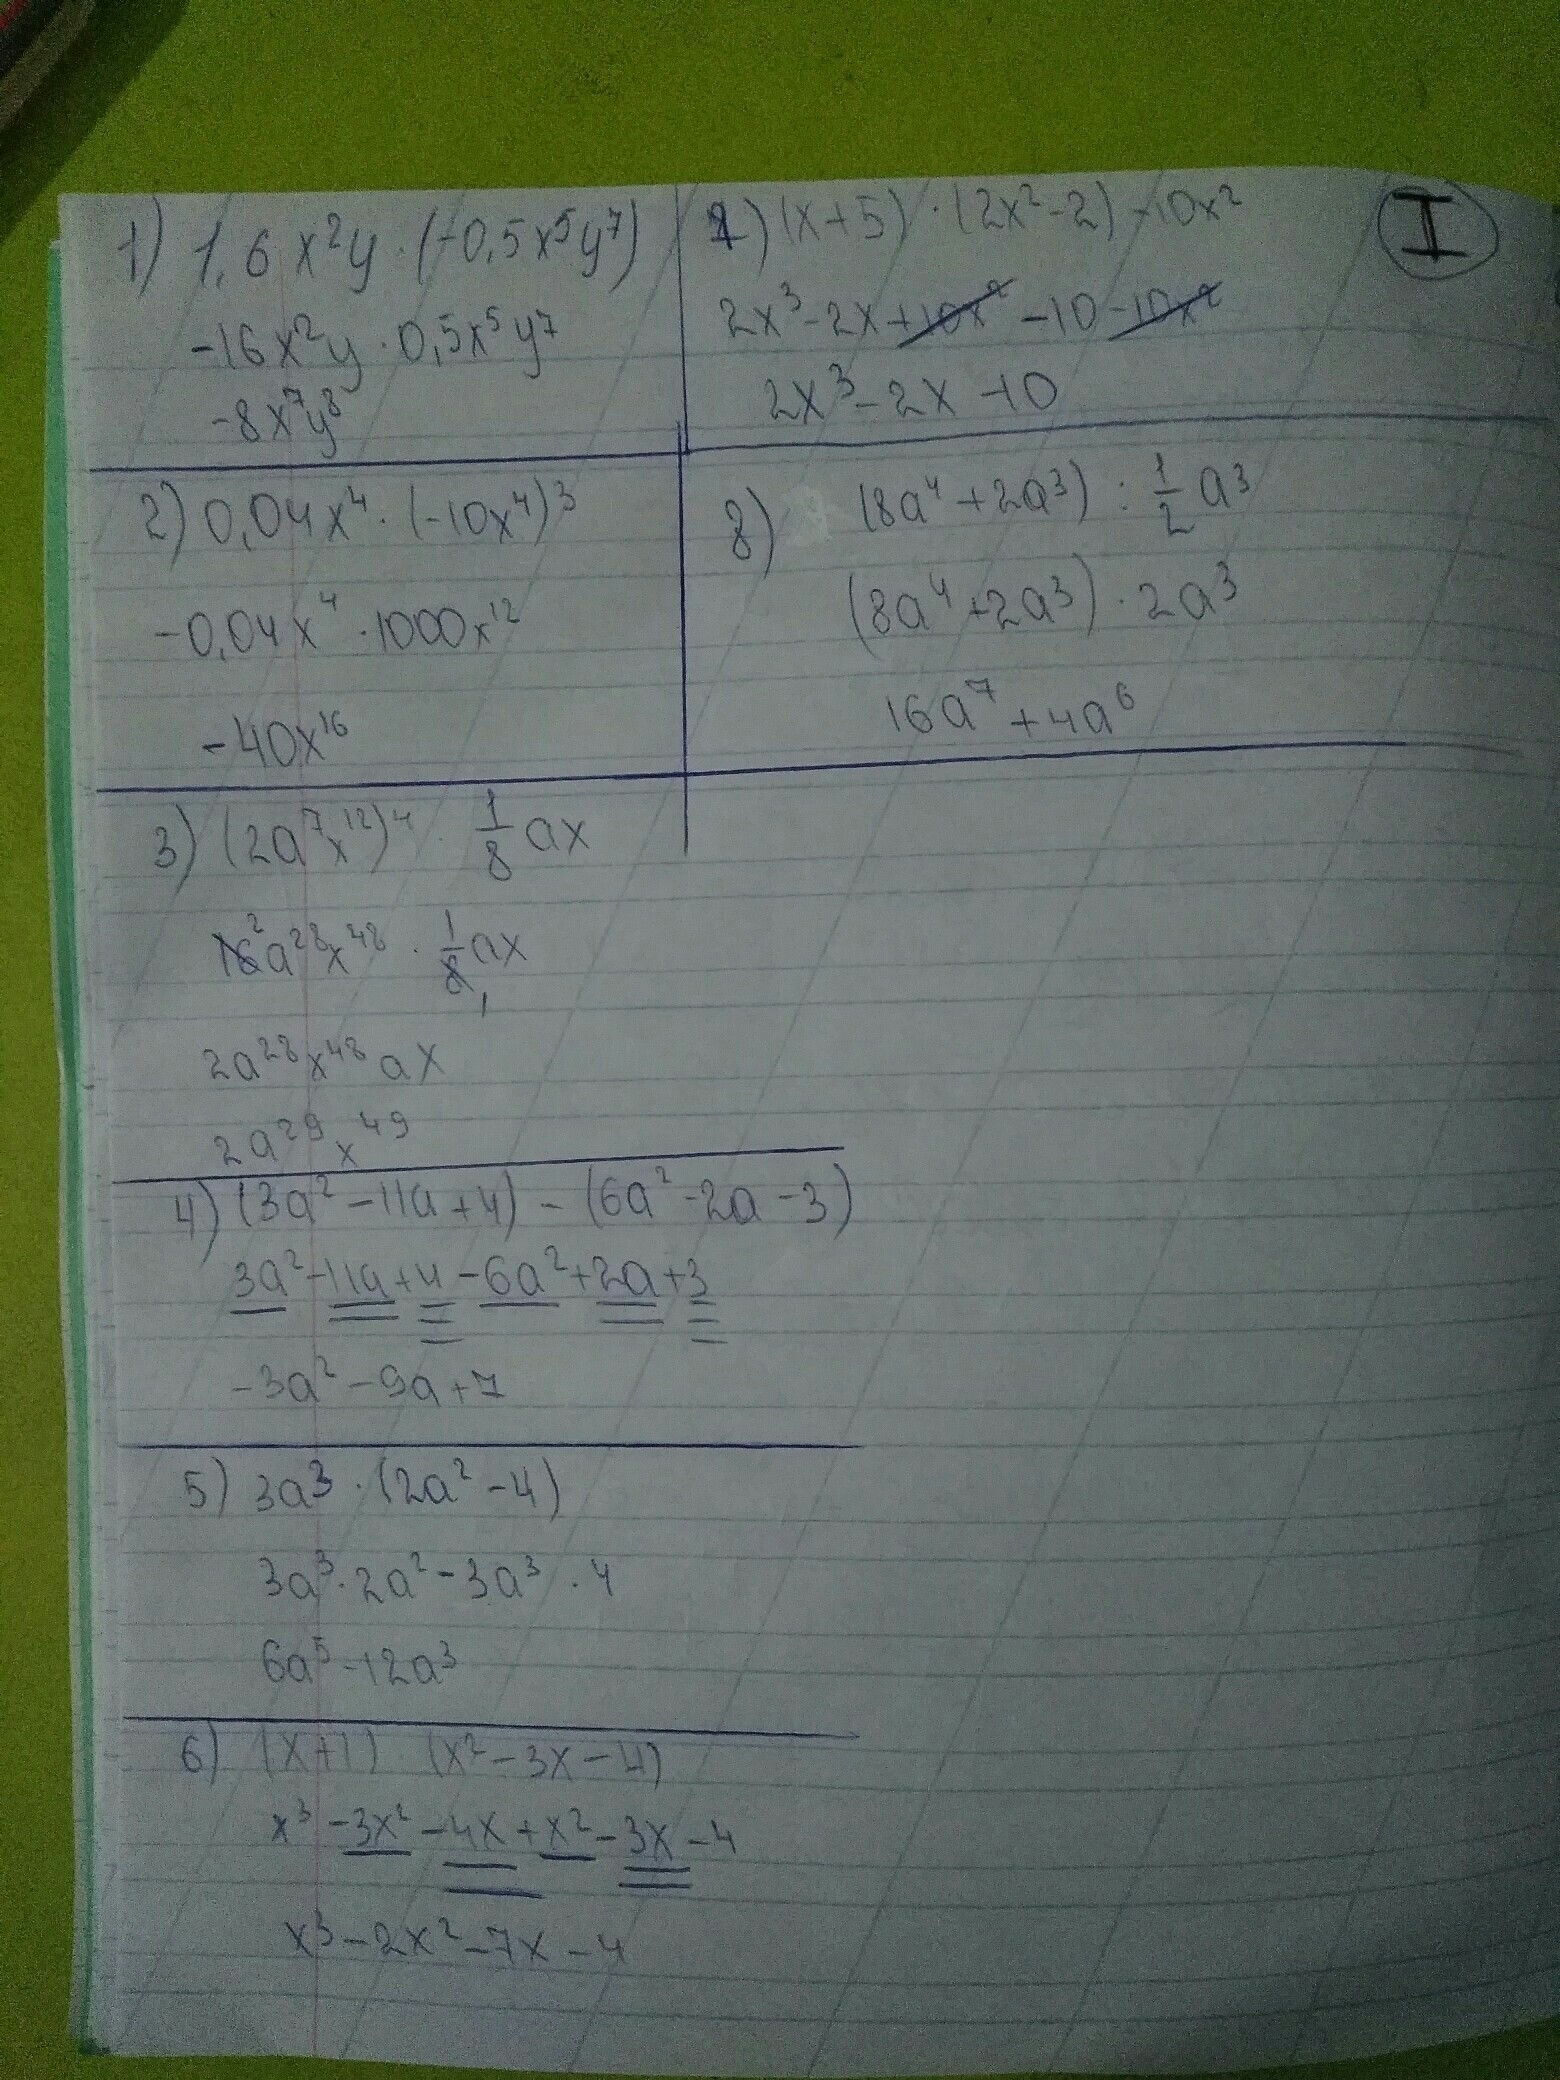 I
1) 1,6 x²y · (-0,5x⁵y⁷)
-16x²y · 0,5x⁵y⁷
-8x⁷y⁸
2) 0,04x⁴ · (-10x⁴)³
-0,04x⁴ · 1000x¹²
-40x¹⁶
3) (2a⁷x¹²)⁴ · 1/8 ax
16²a²⁸x⁴⁸ · 1/8₁ ax
2a²⁸x⁴⁸ax
2a²⁹x⁴⁹
4) (3a² - 11a + 4) - (6a² - 2a - 3)
3a² - 11a + 4 - 6a² + 2a + 3
-3a² - 9a + 7
5) 3a³ · (2a² - 4)
3a³ · 2a² - 3a³ · 4
6a⁵ - 12a³
6) (x+1) (x² - 3x - 4)
x³ - 3x² - 4x + x² - 3x - 4
x³ - 2x² - 7x - 4
7) (x+5) · (2x² - 2) - 10x²
2x³ - 2x + 10x² - 10 - 10x²
2x³ - 2x - 10
8) (8a⁴ + 2a³) : 1/2 a³
(8a⁴ + 2a³) · 2a³
16a⁷ + 4a⁶